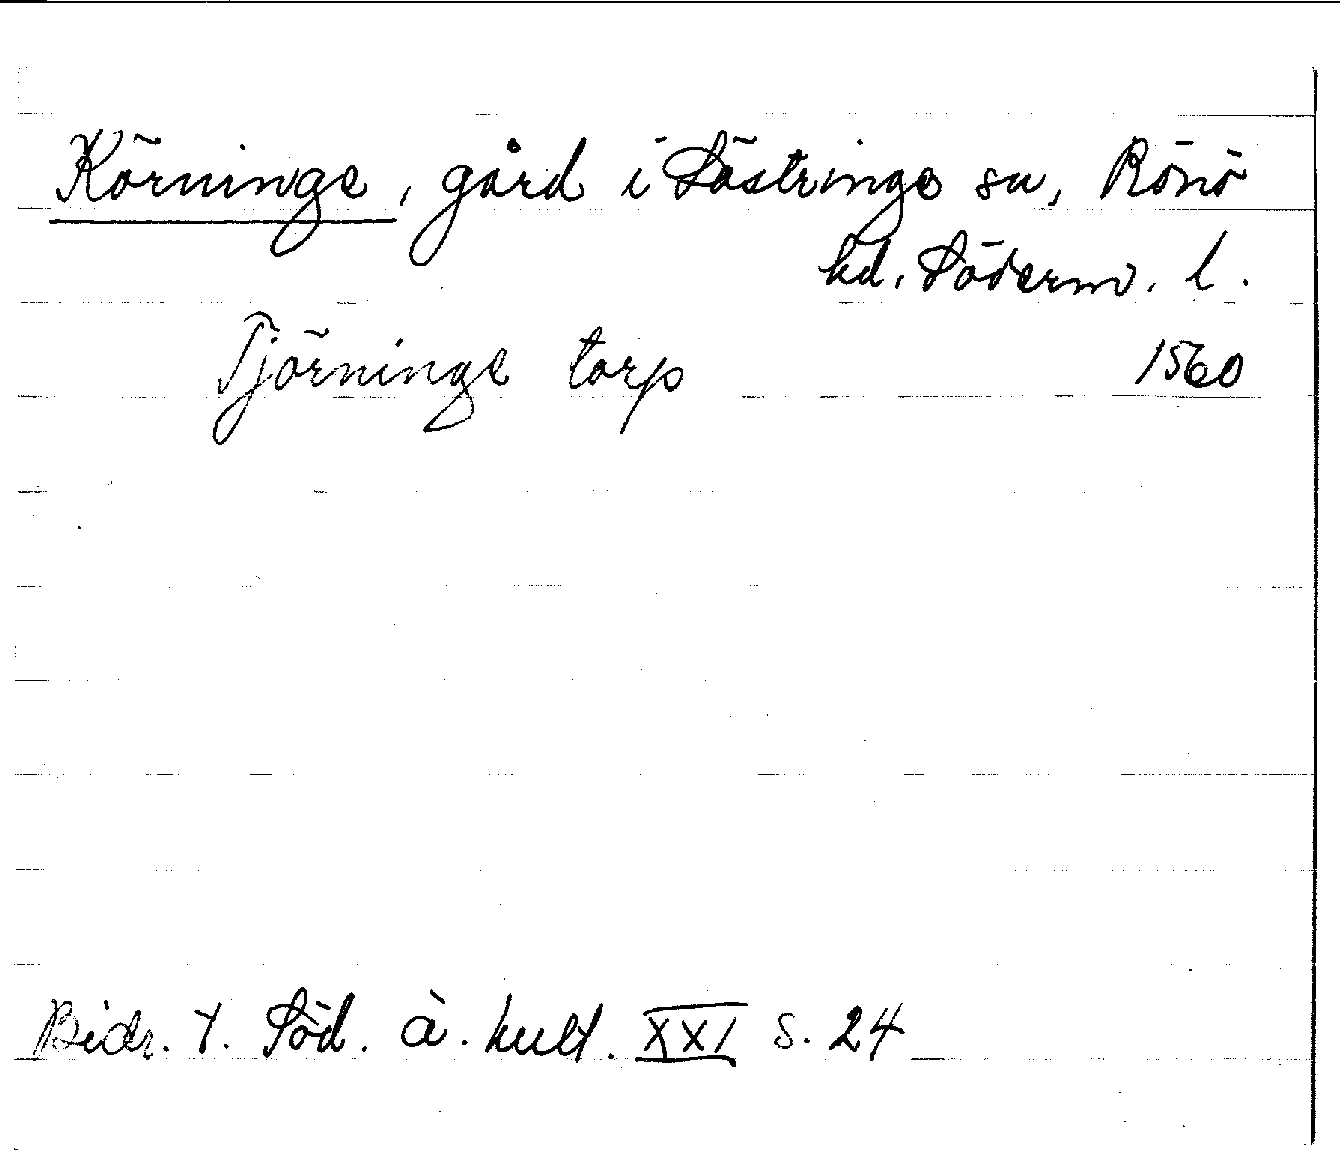 Körninge, gård i Tästringe sn, Rönö
hd. Söderm. l.
Tjörninge torp 1560
Bidr. t. Söd. ä. kult. XXI s. 24